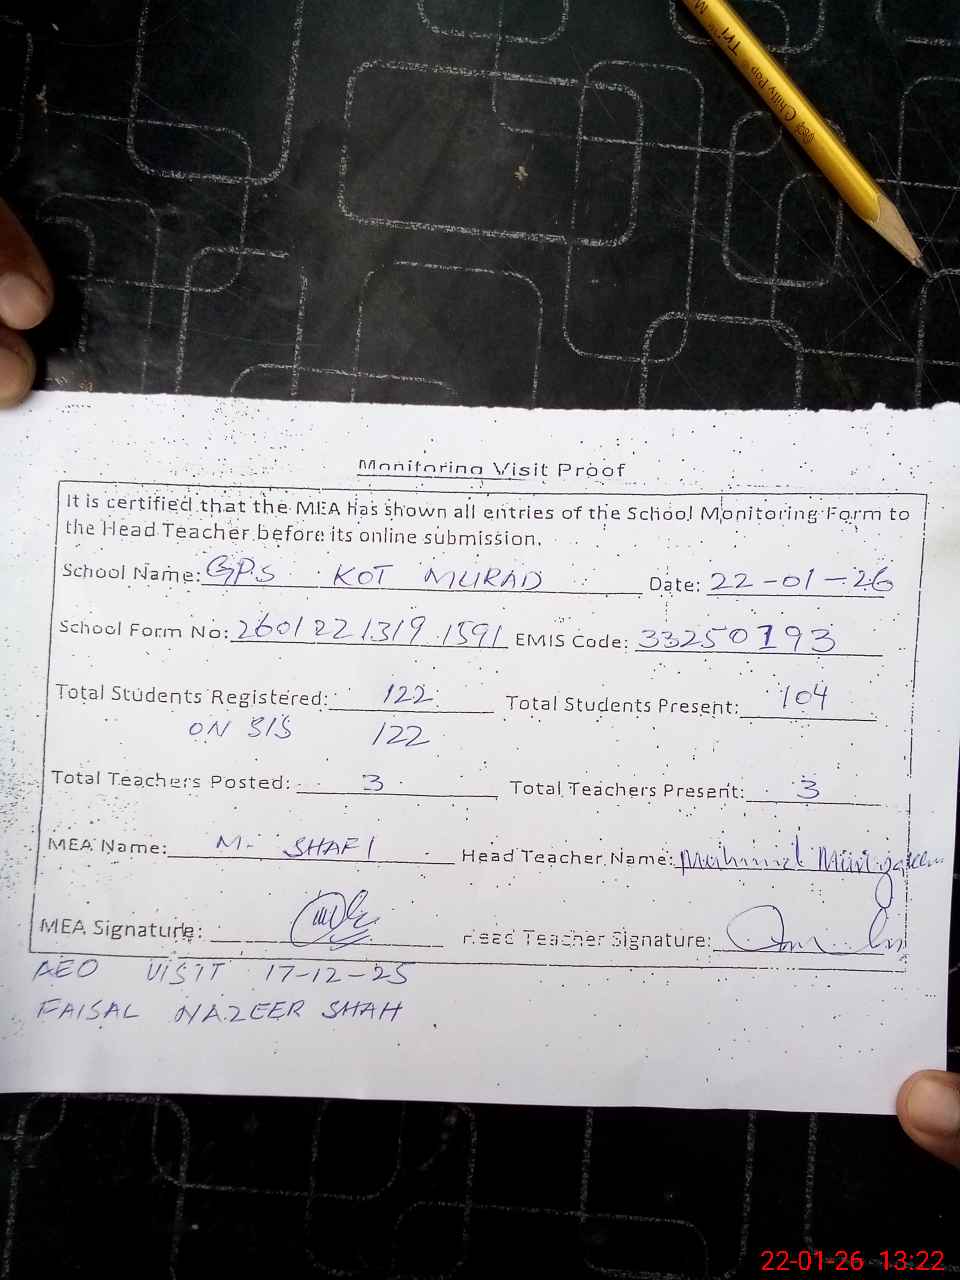 Chilly Pop
Monitoring Visit Proof
It is certified that the MEA has shown all entries of the School Monitoring Form to
the Head Teacher before its online submission.
School Name: GPS KOT MURAD Date: 22-01-26
School Form No: 2601221319 1591 EMIS Code: 33250193
Total Students Registered: 122 Total Students Present: 104
ON SIS 122
Total Teachers Posted: 3 Total Teachers Present: 3
MEA Name: M. SHAFI Head Teacher Name: Muhmmad
MEA Signature: Head Teacher Signature:
AEO VISIT 17-12-25
FAISAL NAZEER SHAH
22-01-26 13:22